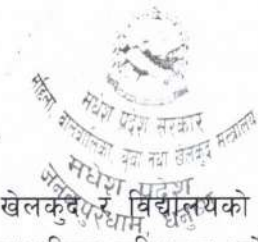 मधेश प्रदेश सरकार
महिला, बालबालिका, युवा तथा खेलकुद मन्त्रालय
मधेश प्रदेश
जनकपुरधाम, धनुषा
खेलकुद र विद्यालयको